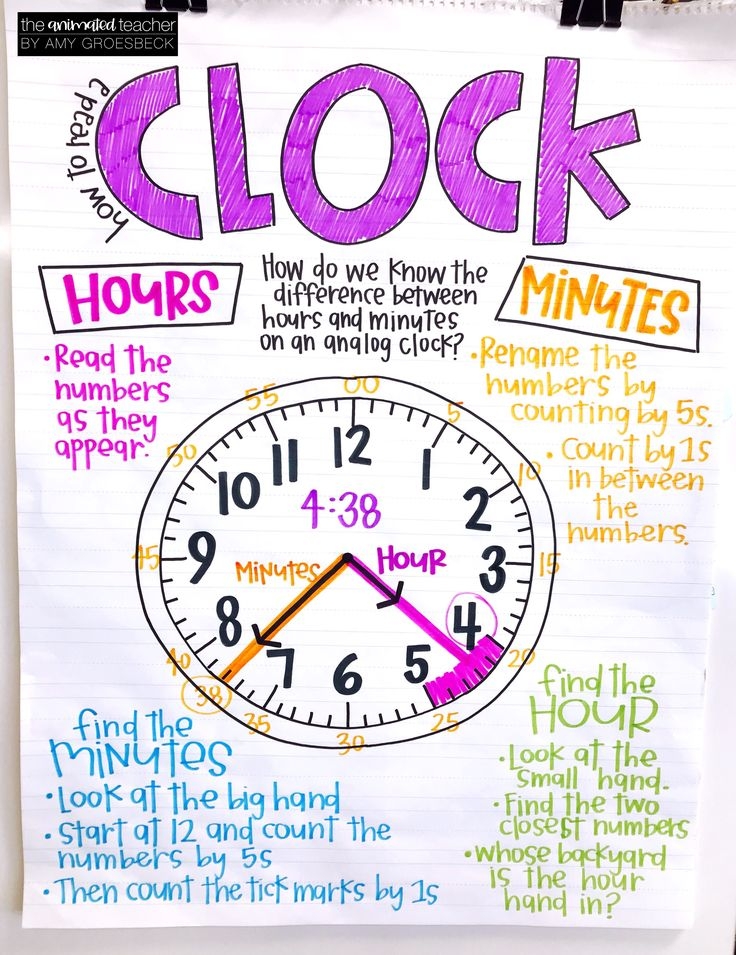 the animated teacher
BY AMY GROESBECK
how to read a
CLOCK
HOURS
How do we know the
difference between
hours and minutes
on an analog clock?
MINUTES
• Read the
numbers
as they
appear.
• Rename the
numbers by
counting by 5s.
• Count by 1s
in between
the
numbers.
00
5
10
15
20
25
30
35
38
40
45
50
55
12
1
2
3
4
5
6
7
8
9
10
11
4:38
MINUTES
HOUR
find the
MINUTES
• Look at the big hand
• Start at 12 and count the
numbers by 5s
• Then count the tick marks by 1s
find the
HOUR
• Look at the
small hand.
• Find the two
closest numbers
• whose backyard
is the hour
hand in?